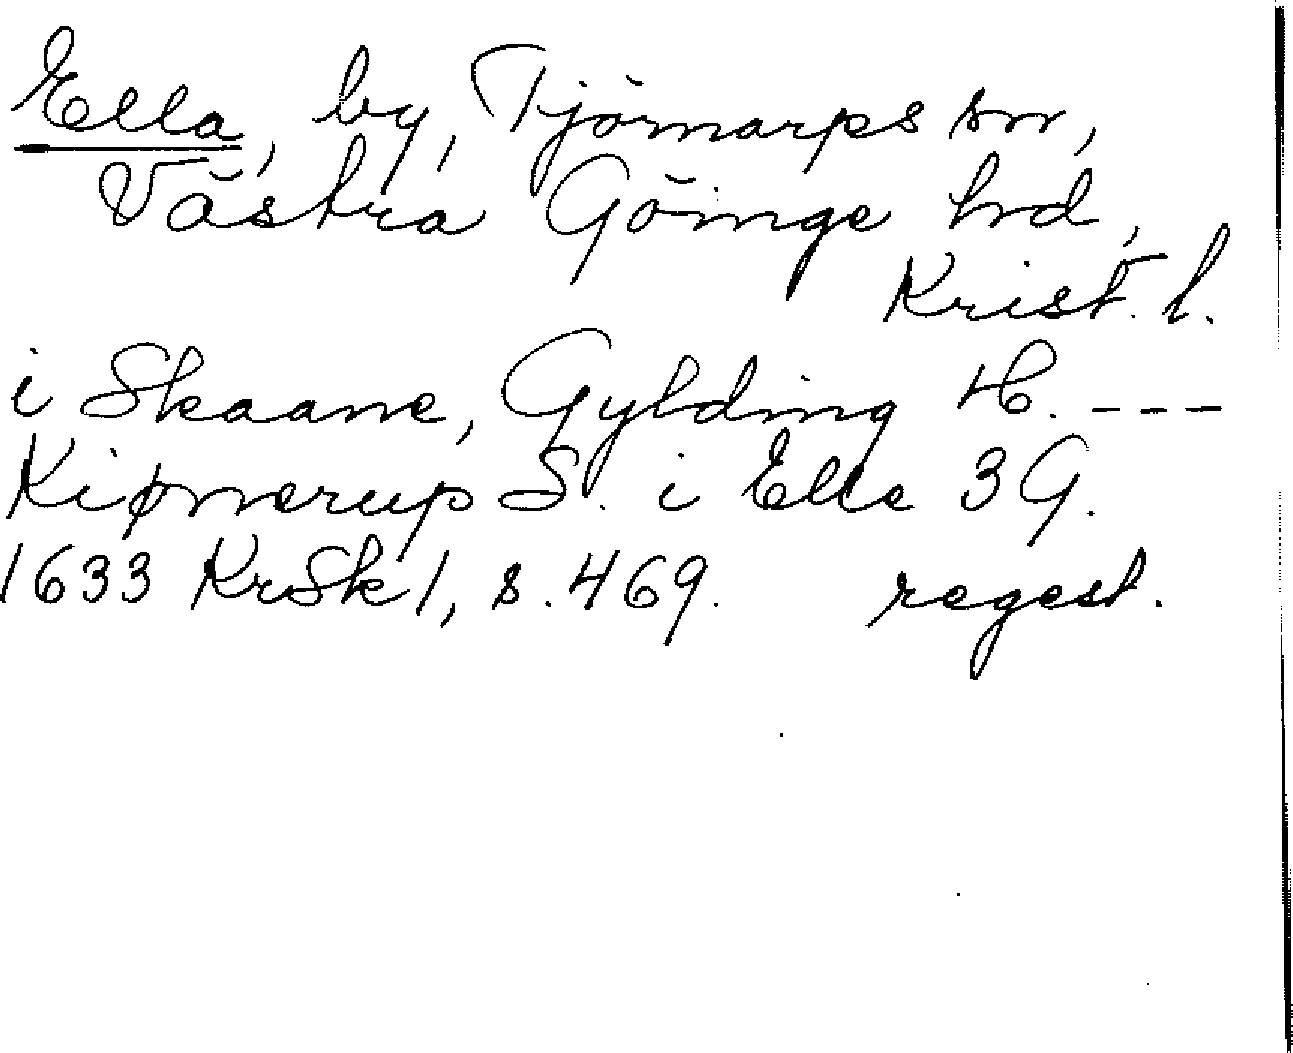 Ella, by, Tjörnarps sn,
Västra Göinge hd,
Krist. l.
i Skaane, Gylding H. ---
Kiønnerup S. i Elle 3 G.
1633 KrSk 1, s. 469. regest.